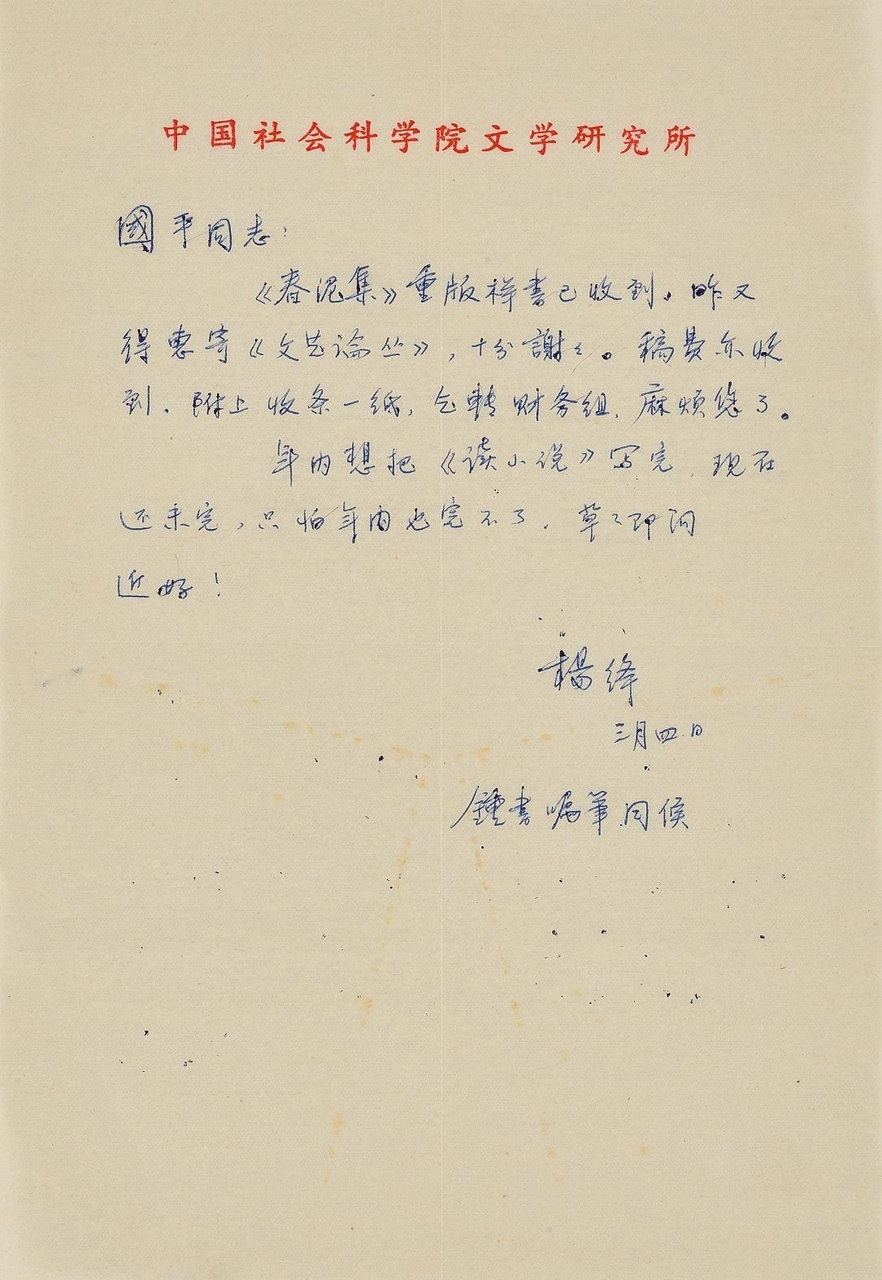 中国社会科学院文学研究所
國平同志：
《春泥集》重版样書已收到。昨又
得惠寄《文艺论丛》，十分謝々。稿费亦收
到。附上收条一纸，乞转财务组，麻烦您了。
年内想把《读小说》写完，现在
还未完，只怕年内也完不了。草々即问
近好！
楊绛
三月四日
鍾書嘱笔同候